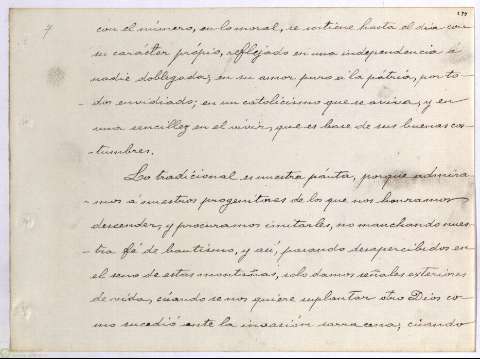 177
7
con el número, en lo moral, se sostiene hasta el día con
su carácter própio, reflejado en una independencia á
nadie doblegada; en su amor puro á la pátria, por to-
-dos envidiado; en un catolicismo que se aviva, y en
una sencillez en el vivir, que es base de sus buenas cos-
-tumbres.
Lo tradicional es nuestra páuta, porque admira-
-mos a nuestros progenitores de los que nos honramos
descender, y procuramos imitarles, no manchando nues-
-tra fé de bautismo, y así, pasando desapercibidos en
el seno de estas montañas, solo damos señales exteriores
de vida, cuándo se nos quiere suplantar otro Dios co-
mo sucedió ante la invasión sarracena; cuándo